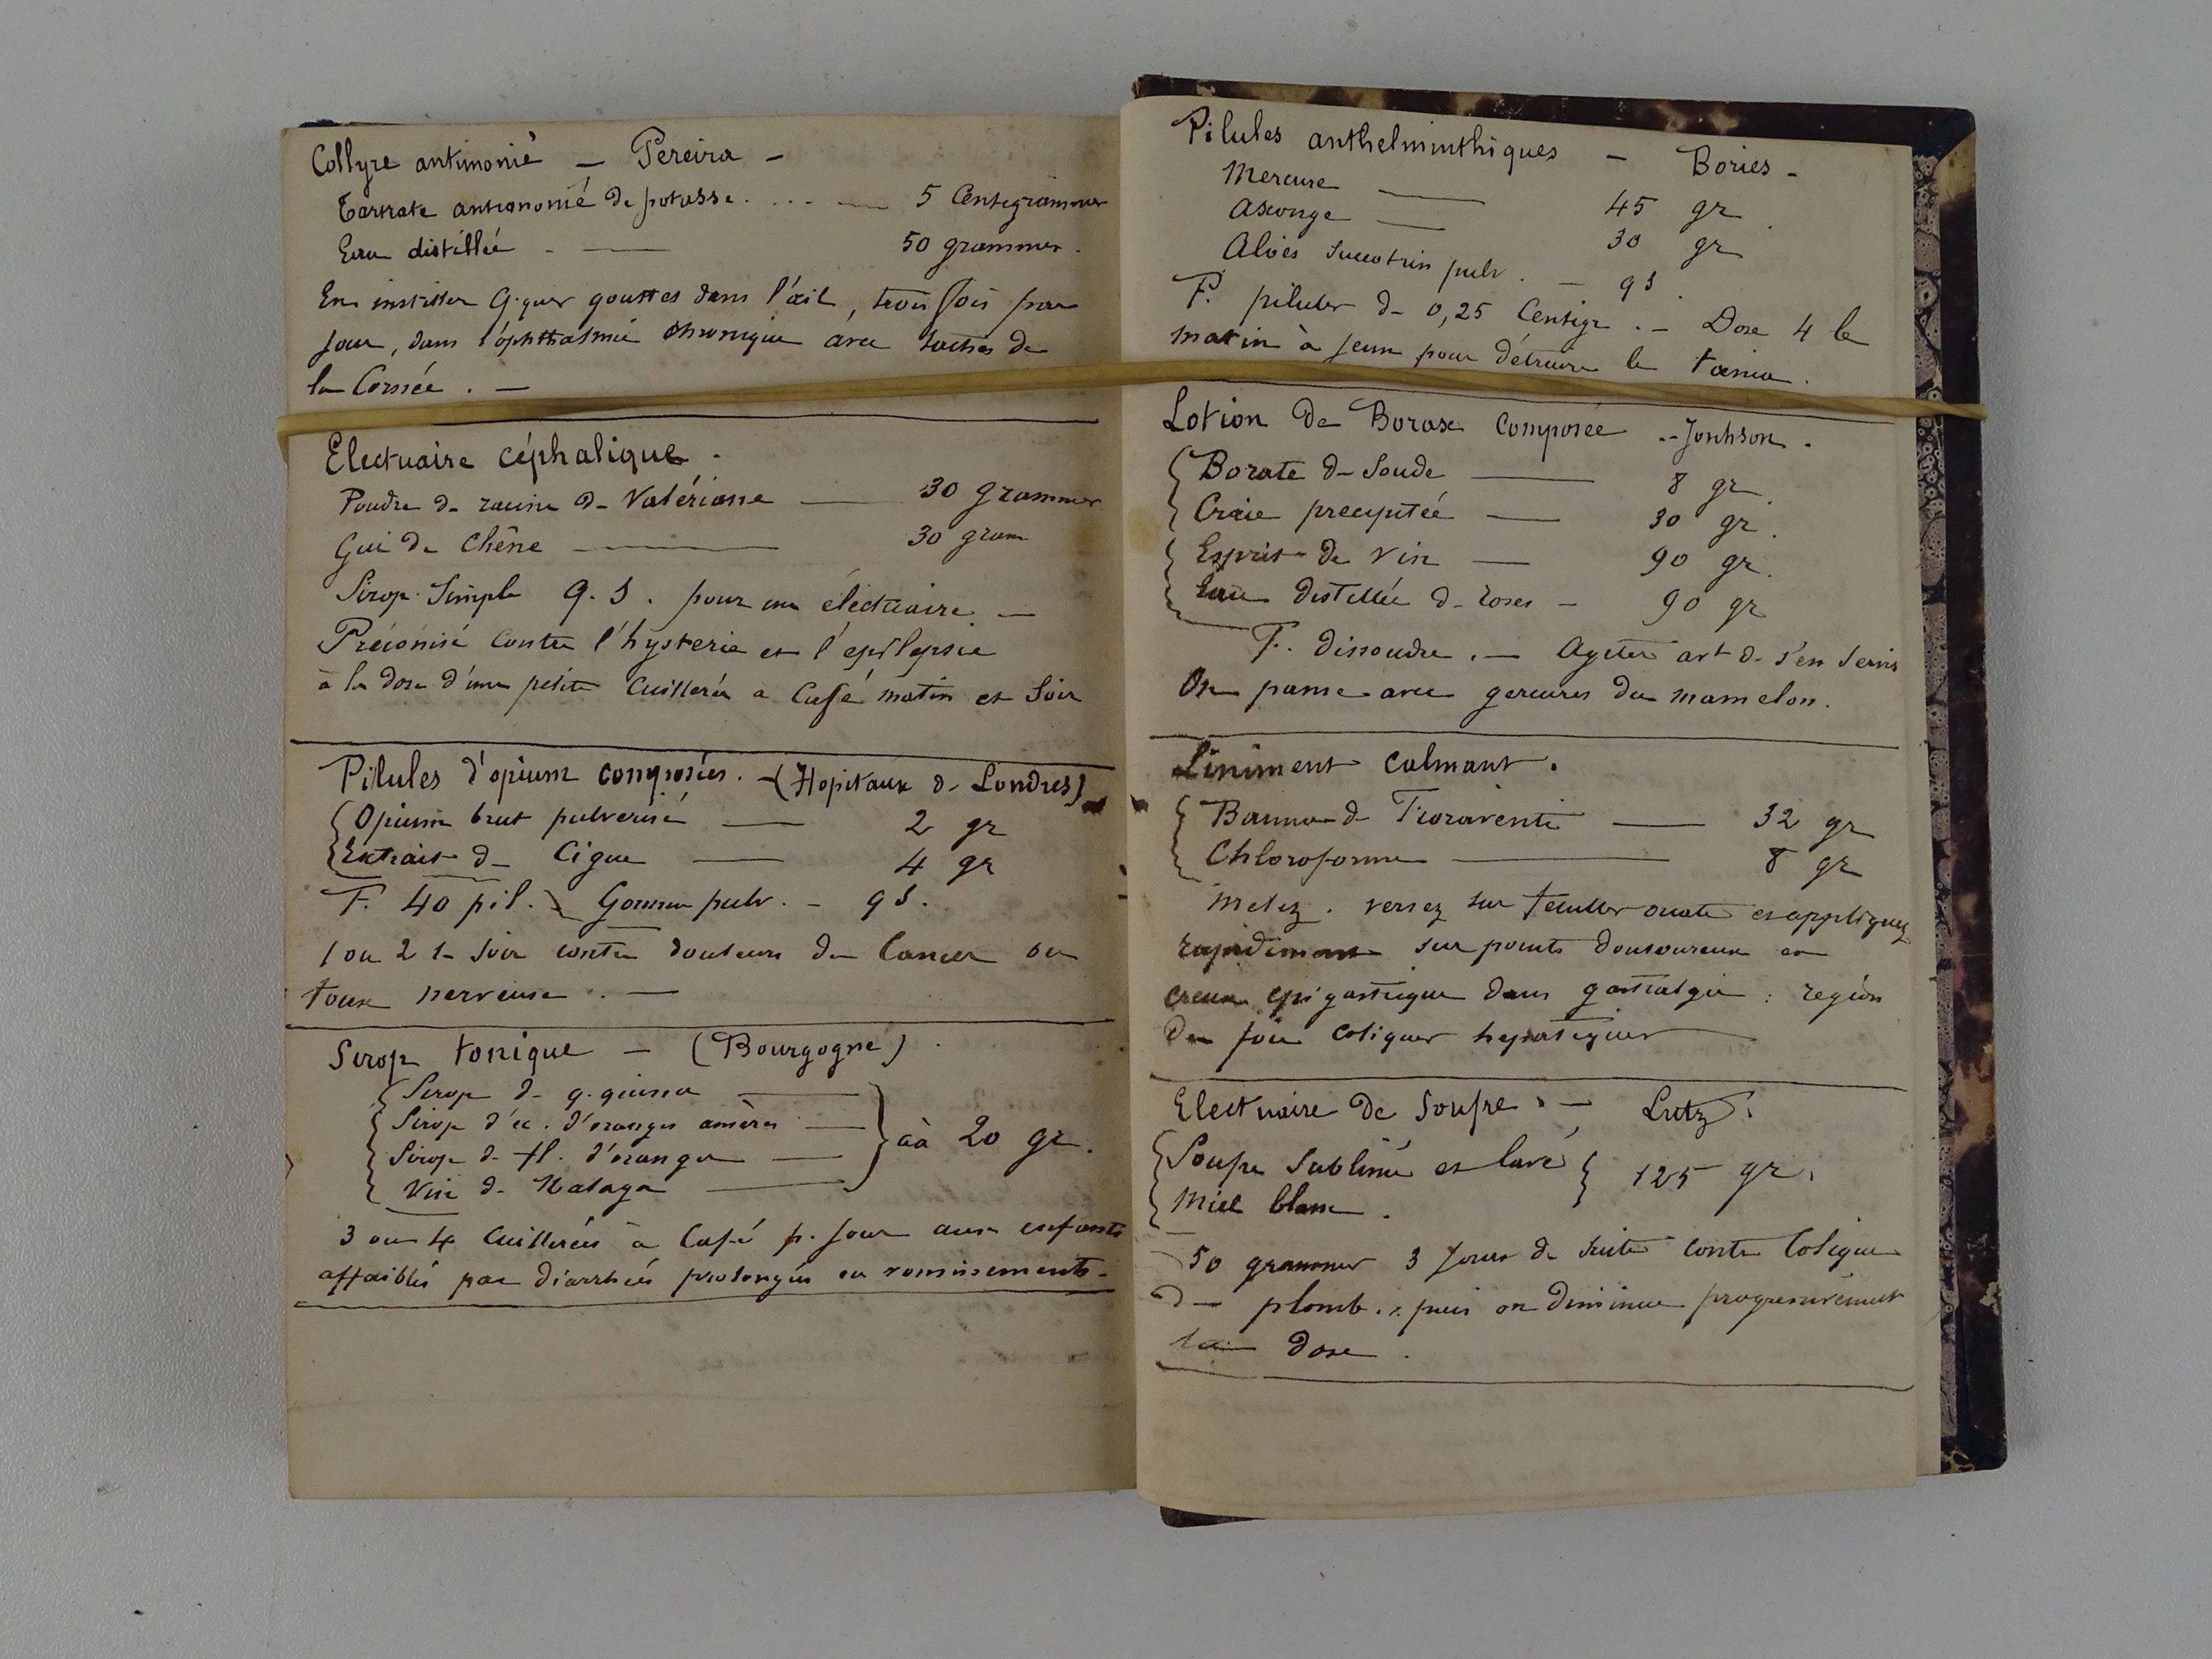 Collyre antimonié — Pereira —
Tartrate antimonié de potasse . . . . — 5 Centigrammes
Eau distillée . — 50 grammes .
En instiller q.ques gouttes dans l'œil, trois fois par
jour, dans l'ophthalmie chronique avec taches de
la Cornée . —
Electuaire céphalique .
Poudre de racine de Valériane — 30 grammes
Gui de Chêne — 30 gram
Sirop Simple q. s. pour un électuaire . —
Préconisé contre l'hysterie et l'epilepsie
à la dose d'une petite Cuillerée a Café matin et Soir
Pilules d'opium composées . — (Hopitaux de Londres)
Opium brut pulverisé — 2 gr
Extrait de Cigue — 4 gr
F. 40 pil. Gomme pulv. — qs.
1 ou 2 le Soir contre douleurs du Cancer ou
toux nerveuse . —
Sirop tonique — (Bourgogne) .
Sirop de q. quina —
Sirop d'éc. d'oranges amères —
Sirop de fl. d'oranger —
Vin de Malaga —
àà 20 gr.
3 ou 4 Cuillerées à Café p. Jour aux enfants
affaiblis par diarrhées prolongées ou vomissements —
Pilules anthelminthiques — Bories —
Mercure — 45 gr
Axonge — 30 gr
Aloès Succotrin pulv . — qs .
F. pilules de 0,25 Centigr . — Dose 4 le
matin à jeun pour détruire le tænia .
Lotion de Borax Composée . — Jonhson .
Borate de Soude — 8 gr .
Craie precipitée — 30 gr .
Esprit de vin — 90 gr .
Eau distillée de roses — 90 gr
F. dissoudre . — Agiter avt de s'en servir
On panse avec gerçures du mamelon .
Liniment Calmant .
Baume de Fioraventi — 32 gr
Chloroforme — 8 gr
Melez . versez sur feuilles ouate et appliquez
rapidement sur points douloureux et
creux epigastrique dans gastralgie : region
du foie coliques hepatiques —
Electuaire de Soufre . — Lutz .
Soufre Sublimé et lavé
Miel blanc .
125 gr .
50 grammes 3 jours de suite contre Colique
de plomb . puis on diminue progressivement
la dose .